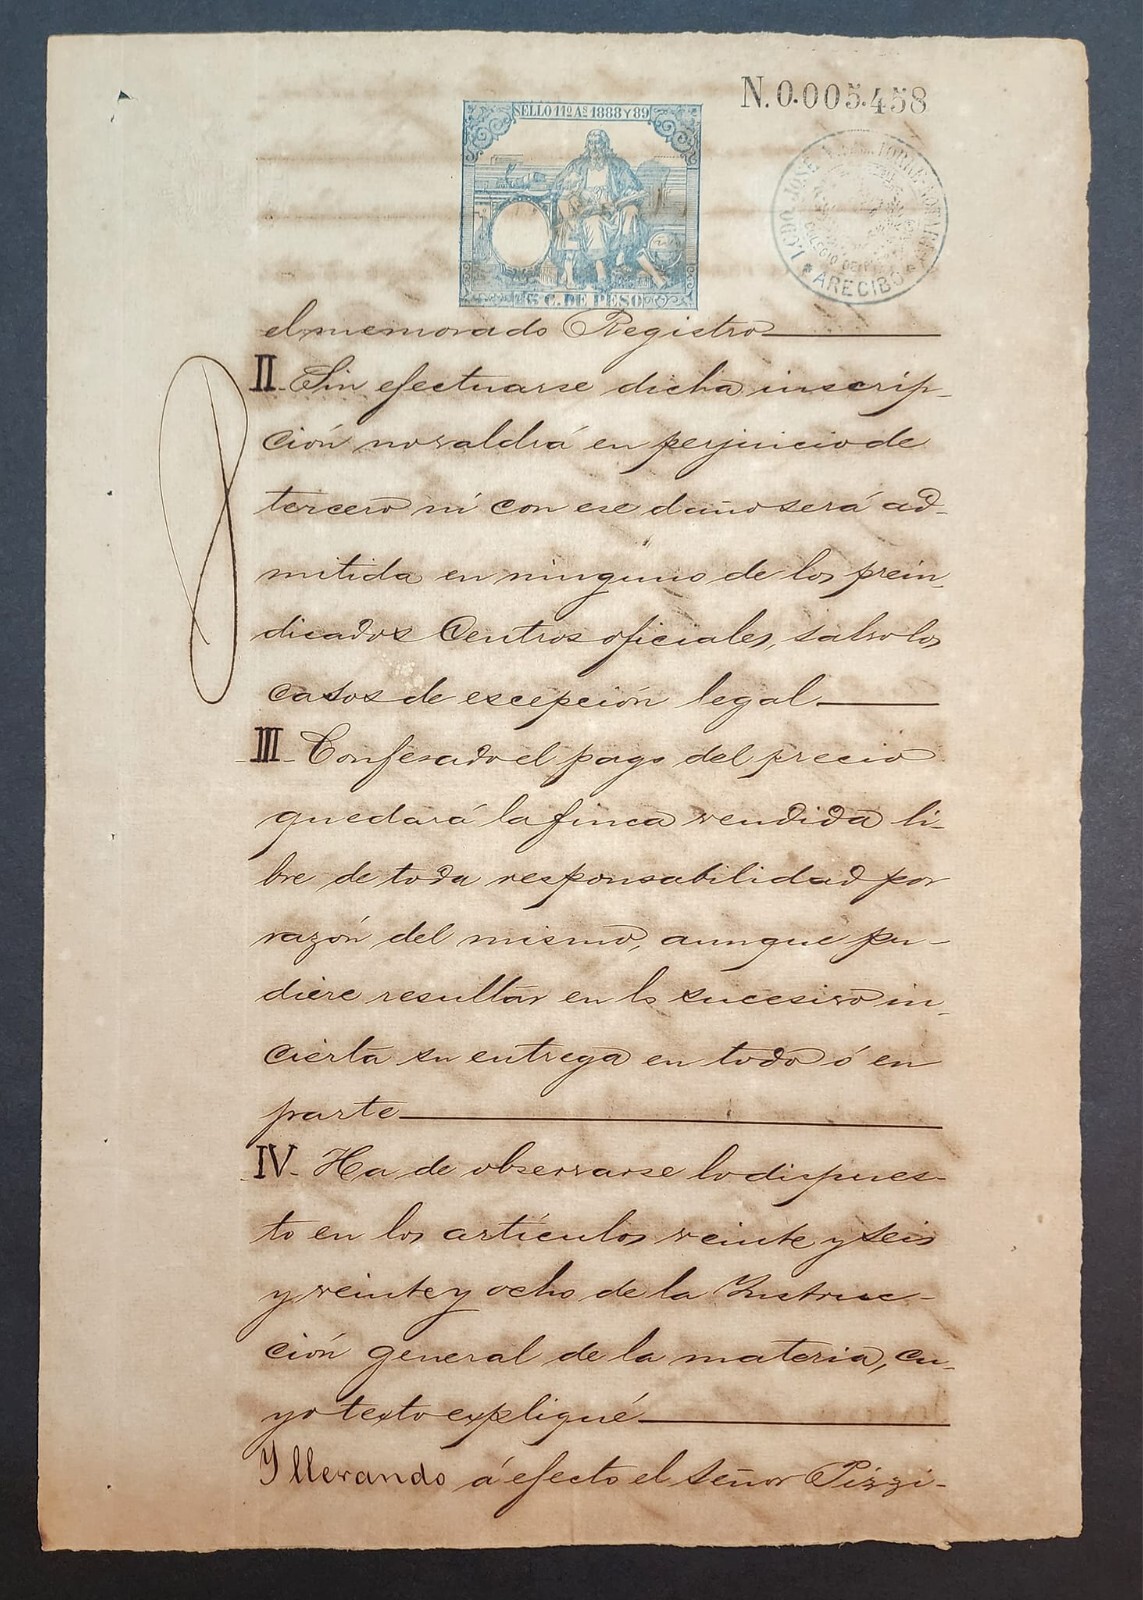 N. 0.005.458
SELLO 11º Aˢ 1888 Y 89
35 C. DE PESO
LCDO. JOSÉ
NOTARIO
COLEGIO DE
* ARECIBO *
el memorado Registro
II. Sin efectuarse dicha inscrip-
ción no valdrá en perjuicio de
tercero ni con ese daño será ad-
mitida en ninguno de los prein-
dicados Centros oficiales, salvo los
casos de escepción legal.
III. Confesado el pago del precio
quedará la finca vendida li-
bre de toda responsabilidad por
razón del mismo, aunque pu-
diere resultar en lo sucesivo in-
cierta su entrega en todo ó en
parte
IV. Ha de observarse lo dispues-
to en los artículos veinte y seis
y veinte y ocho de la Instruc-
ción general de la materia, cu-
yo texto expliqué
Y llevando á efecto el señor Pizzi-